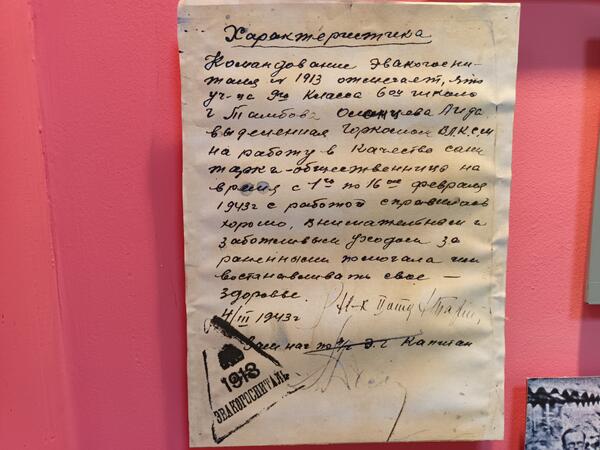 Характеристика
Командование Эвакогоспи-
таля № 1913 отмечает, что
уч-ца 9го класса 6ой школы
г Тамбова Лида
выделенная Горкомом ВЛКСМ
на работу в качестве сани
тарки-общественницы на
время с 1го по 16ое февраля
1943г с работой справилась
хорошо, внимательным и
заботливым уходом за
ранеными помогала им
востанавливать свое —
здоровье.
4/III 1943г Н-к
Зам нач по п/ч Э.Г Капитан
1913
ЭВАКОГОСПИТАЛЬ